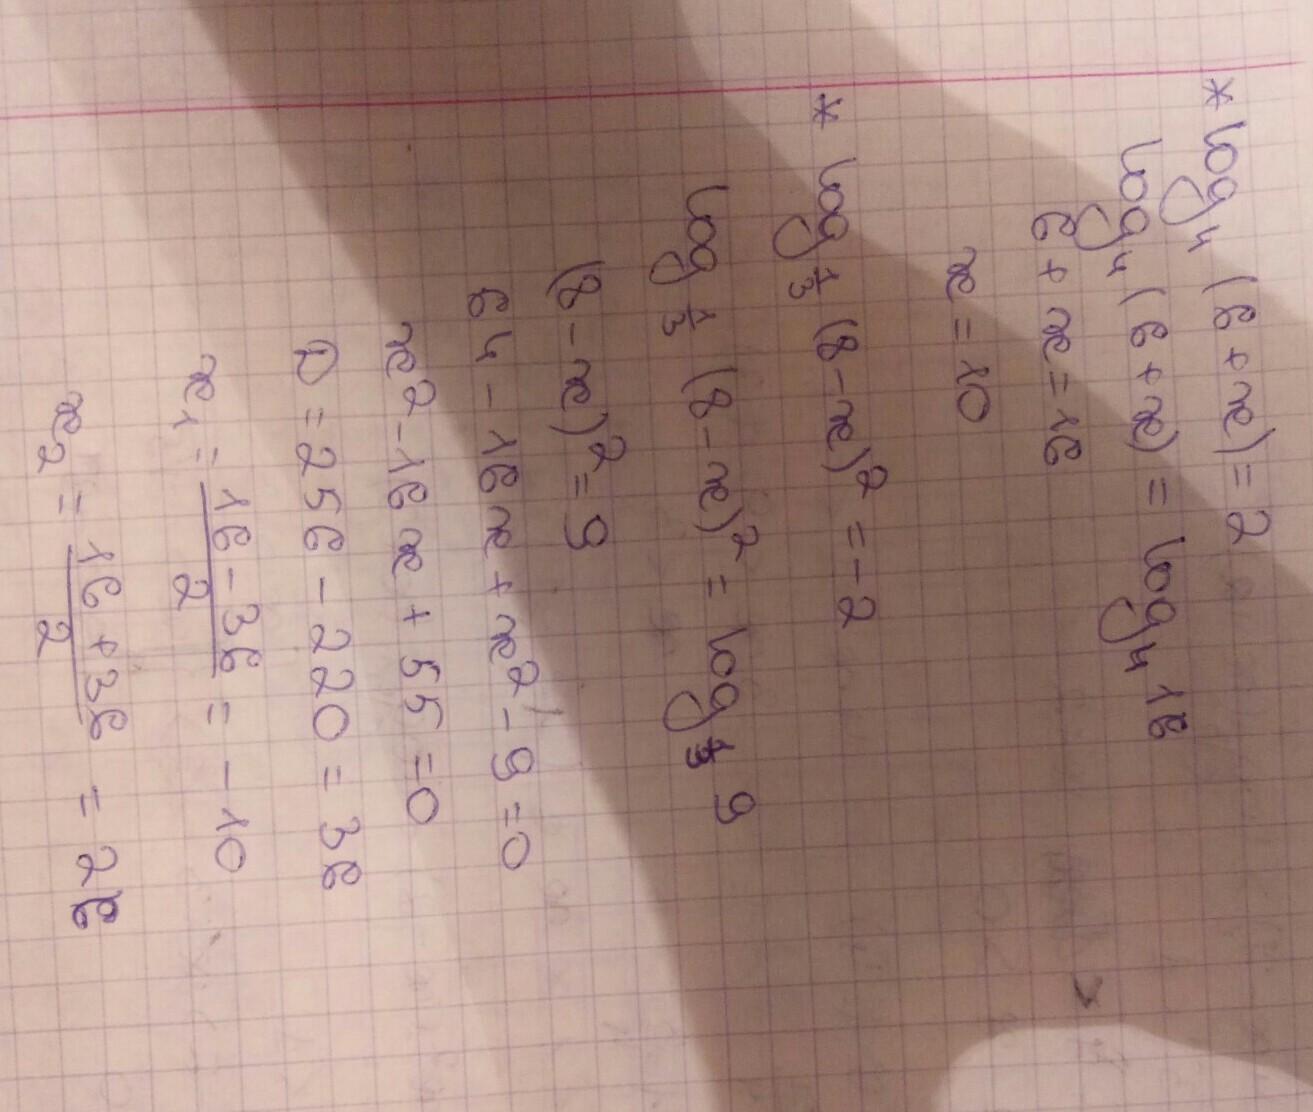 * log₄ (6+x) = 2
log₄ (6+x) = log₄ 16
6 + x = 16
x = 10
* log_{1/3} (8-x)² = -2
log_{1/3} (8-x)² = log_{1/3} 9
(8-x)² = 9
64 - 16x + x² - 9 = 0
x² - 16x + 55 = 0
D = 256 - 220 = 36
x₁ = (16 - 36)/2 = -10
x₂ = (16 + 36)/2 = 26